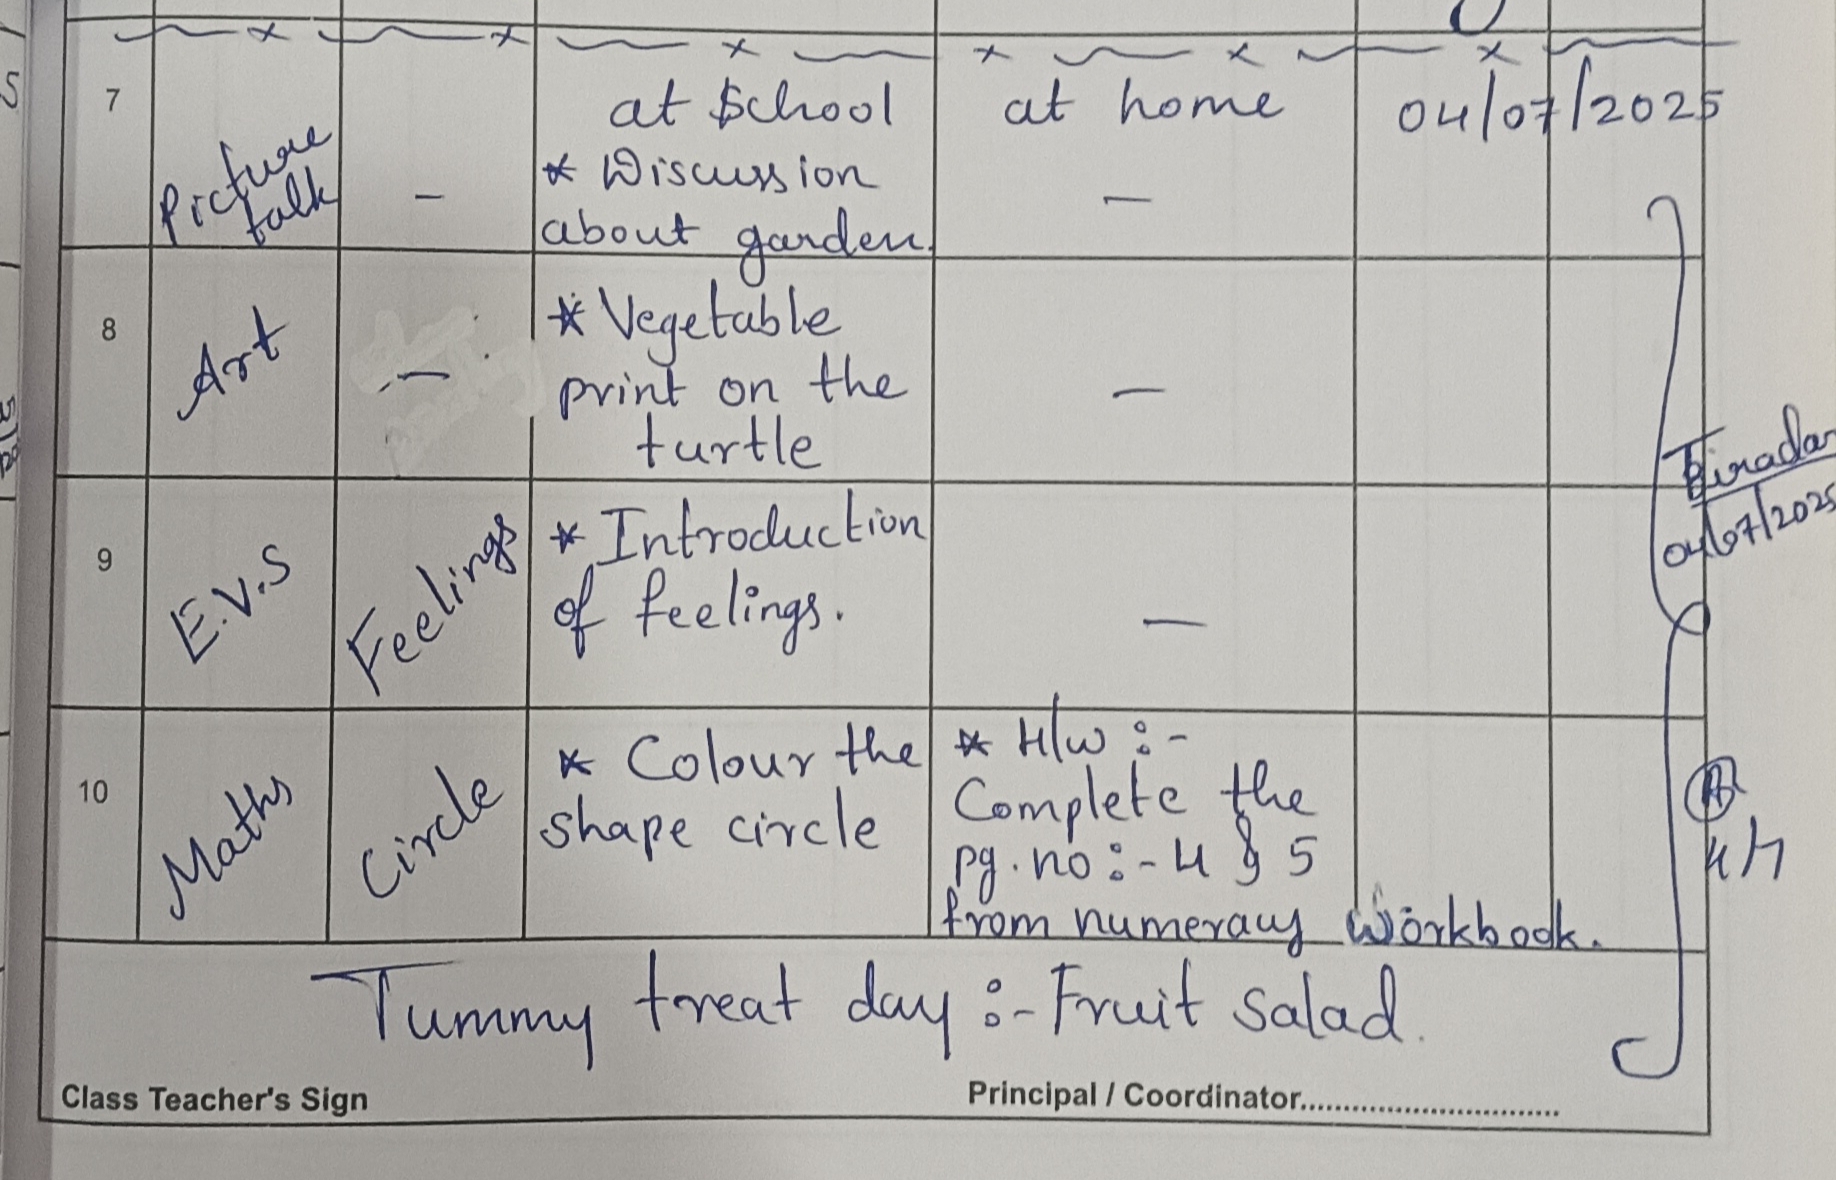 7
at School
at home
04/07/2025
Picture
talk
–
* Discussion
about garden.
–
8
Art
–
* Vegetable
print on the
turtle
–
9
E.V.S
Feelings
* Introduction
of feelings.
–
10
Maths
Circle
* Colour the
shape circle
* H/w :-
Complete the
pg. no :- 4 & 5
from numeracy workbook.
Biradar
04/07/2025
Tummy treat day :- Fruit Salad.
Class Teacher's Sign
Principal / Coordinator..............................